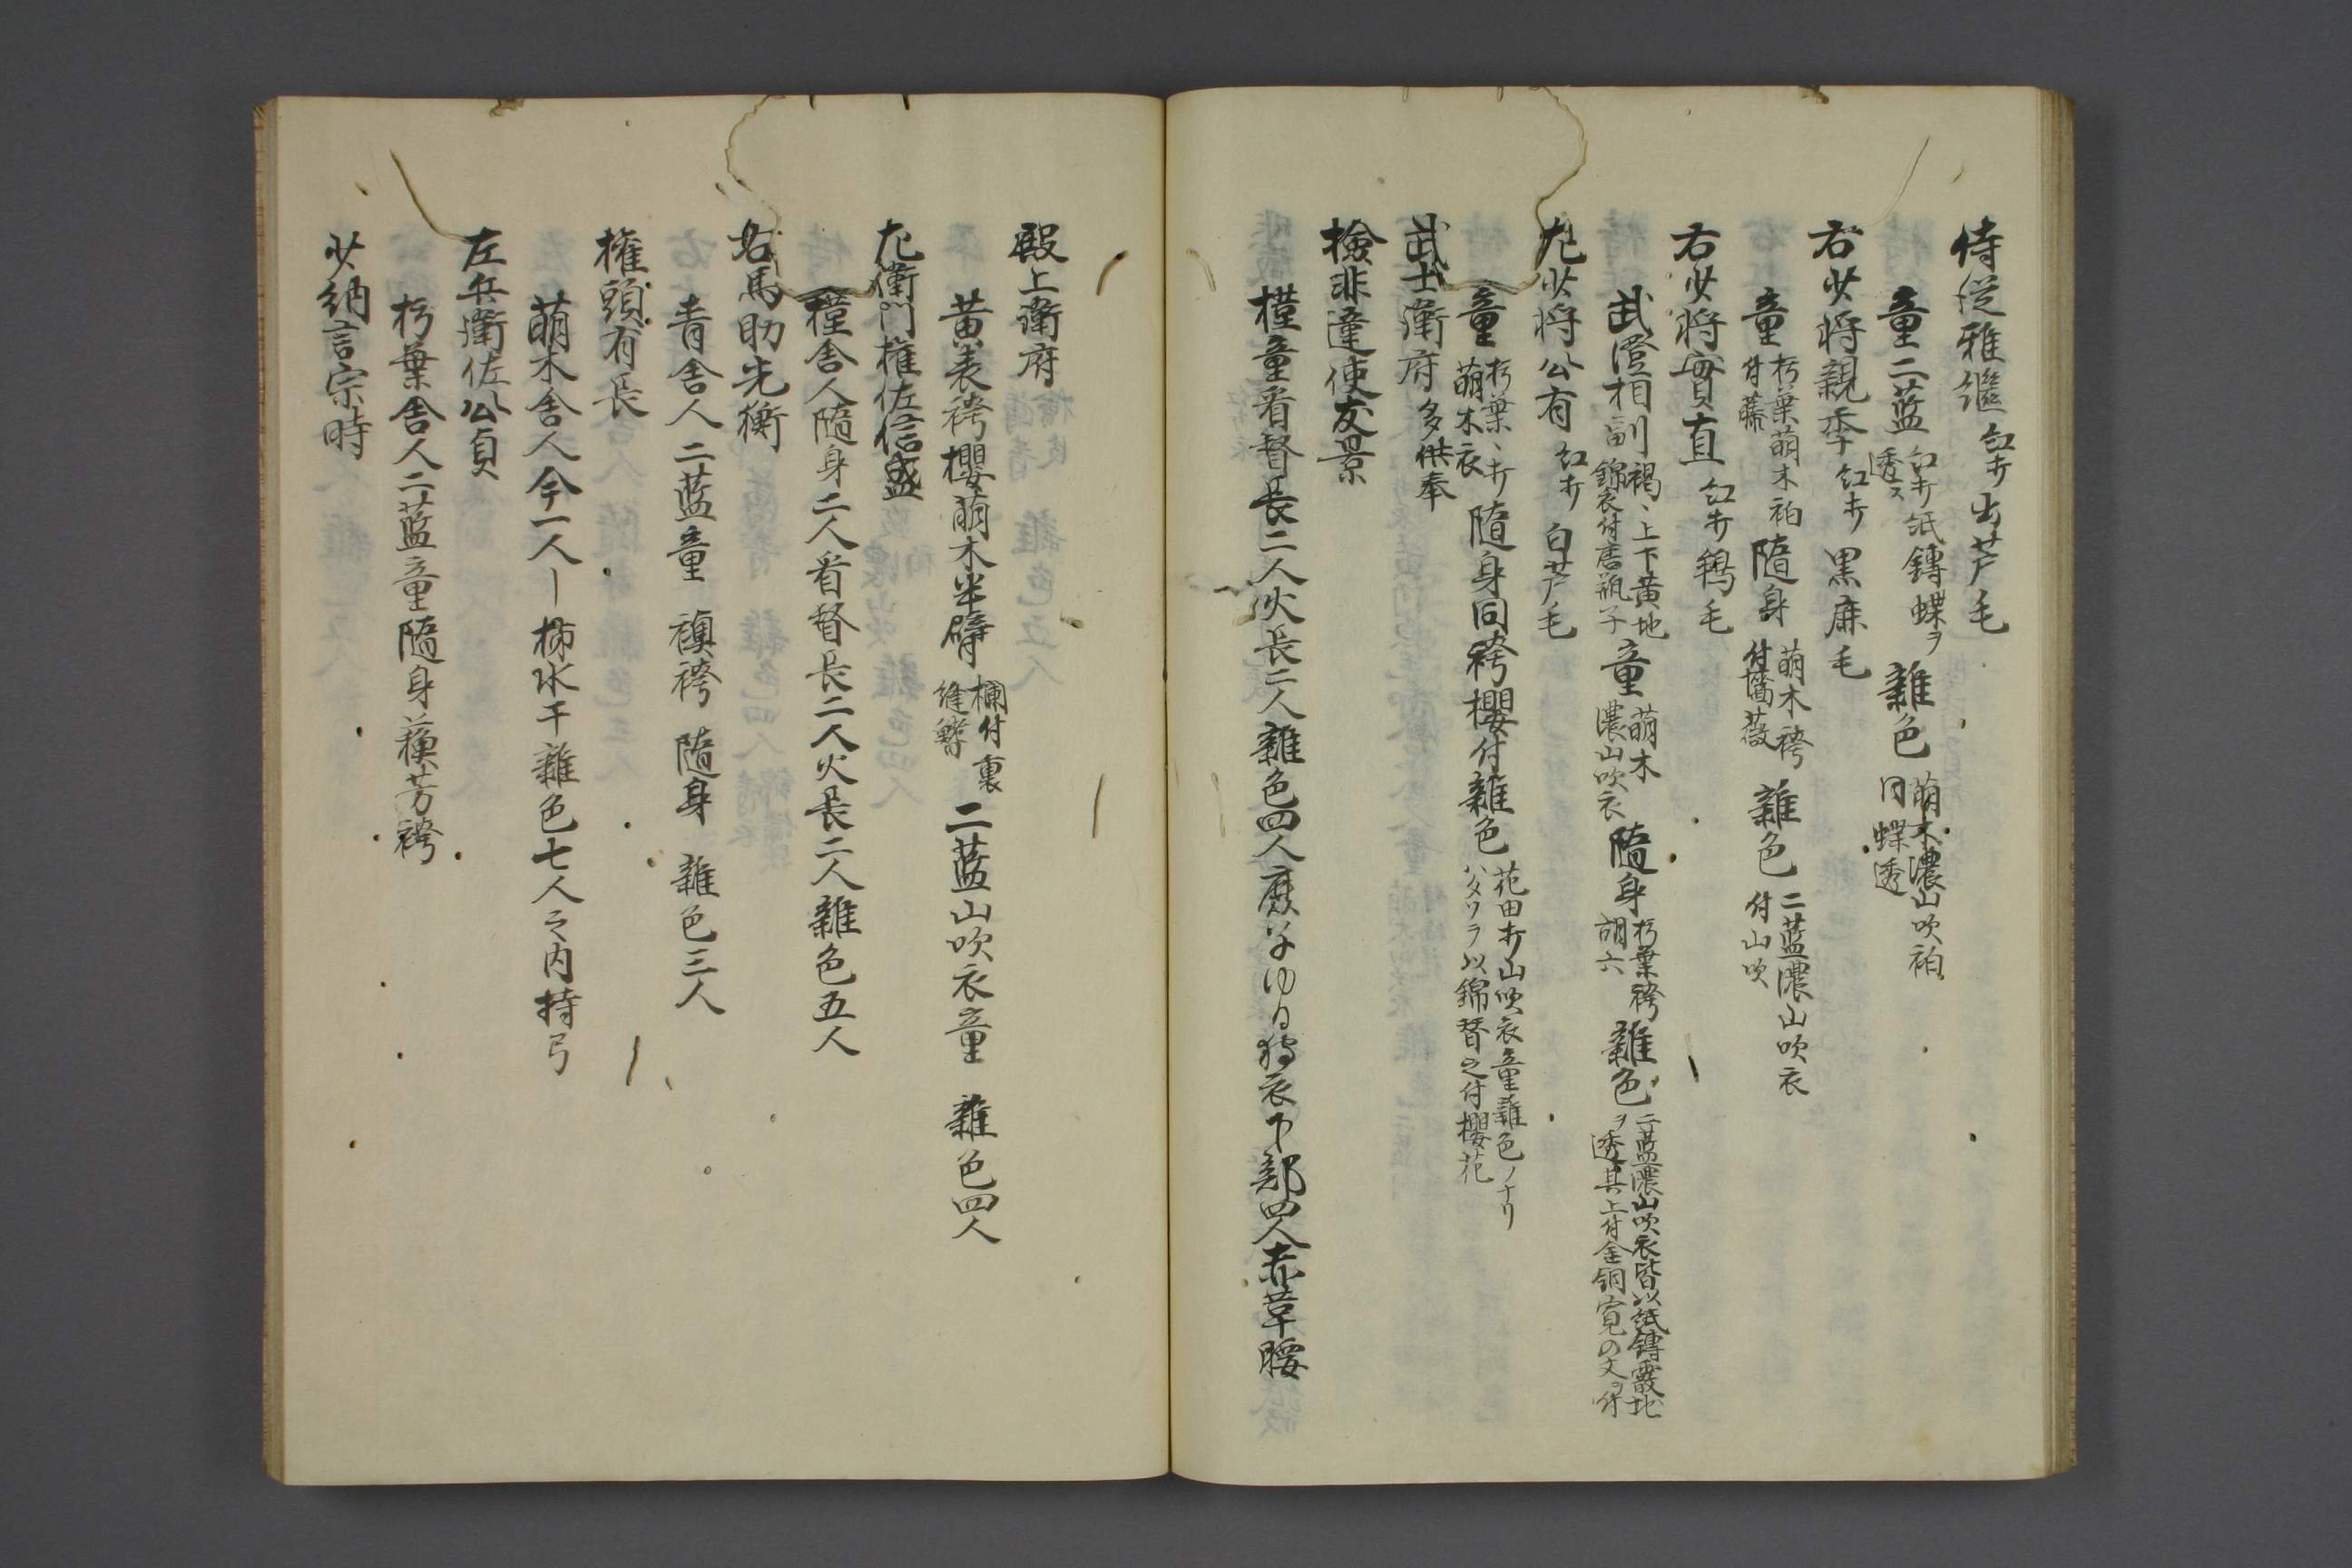 侍従雅継 紅打出芦毛
童二藍 紅打紙鏄蝶ヲ
透ス
雑色 萌木濃山吹衵
同蝶透
右少将親季 紅打 黒鹿毛
童 朽葉萌木衵
付藤
随身 萌木袴
付薔薇
雑色 二藍濃山吹衣
付山吹
右少将實直 紅打鵇毛
武澄相副 褐、上下黄地
錦衣付唐瓶子
童 萌木
濃山吹衣
随身 朽葉袴
胡六
雑色 二藍濃山吹衣皆以紙鏄霰地
ヲ透其上付金銅寛の文ヲ付
左少将公有 紅打 白芦毛
童 朽葉、打
萌木衣
随身同袴櫻付雑色 花田打山吹衣童雑色ノナリ
ハタソラ以錦替之付櫻花
武士衛府 多供奉
檢非違使友景
槿童看督長二人火長二人雑色四人 狩衣下部四人赤草腰
殿上衛府
黄表袴櫻萌木半臂 欄付裏
縫
二藍山吹衣童 雑色四人
左衛門権佐信盛
槿舎人随身二人看督長二人火長二人雑色五人
右馬助光衡
青舎人二藍童 袴 随身 雑色三人
権頭有長
萌木舎人今一人 柿水干雑色七人之内持弓
左兵衛佐公員
朽葉舎人二藍童随身蘓芳袴
少納言宗時